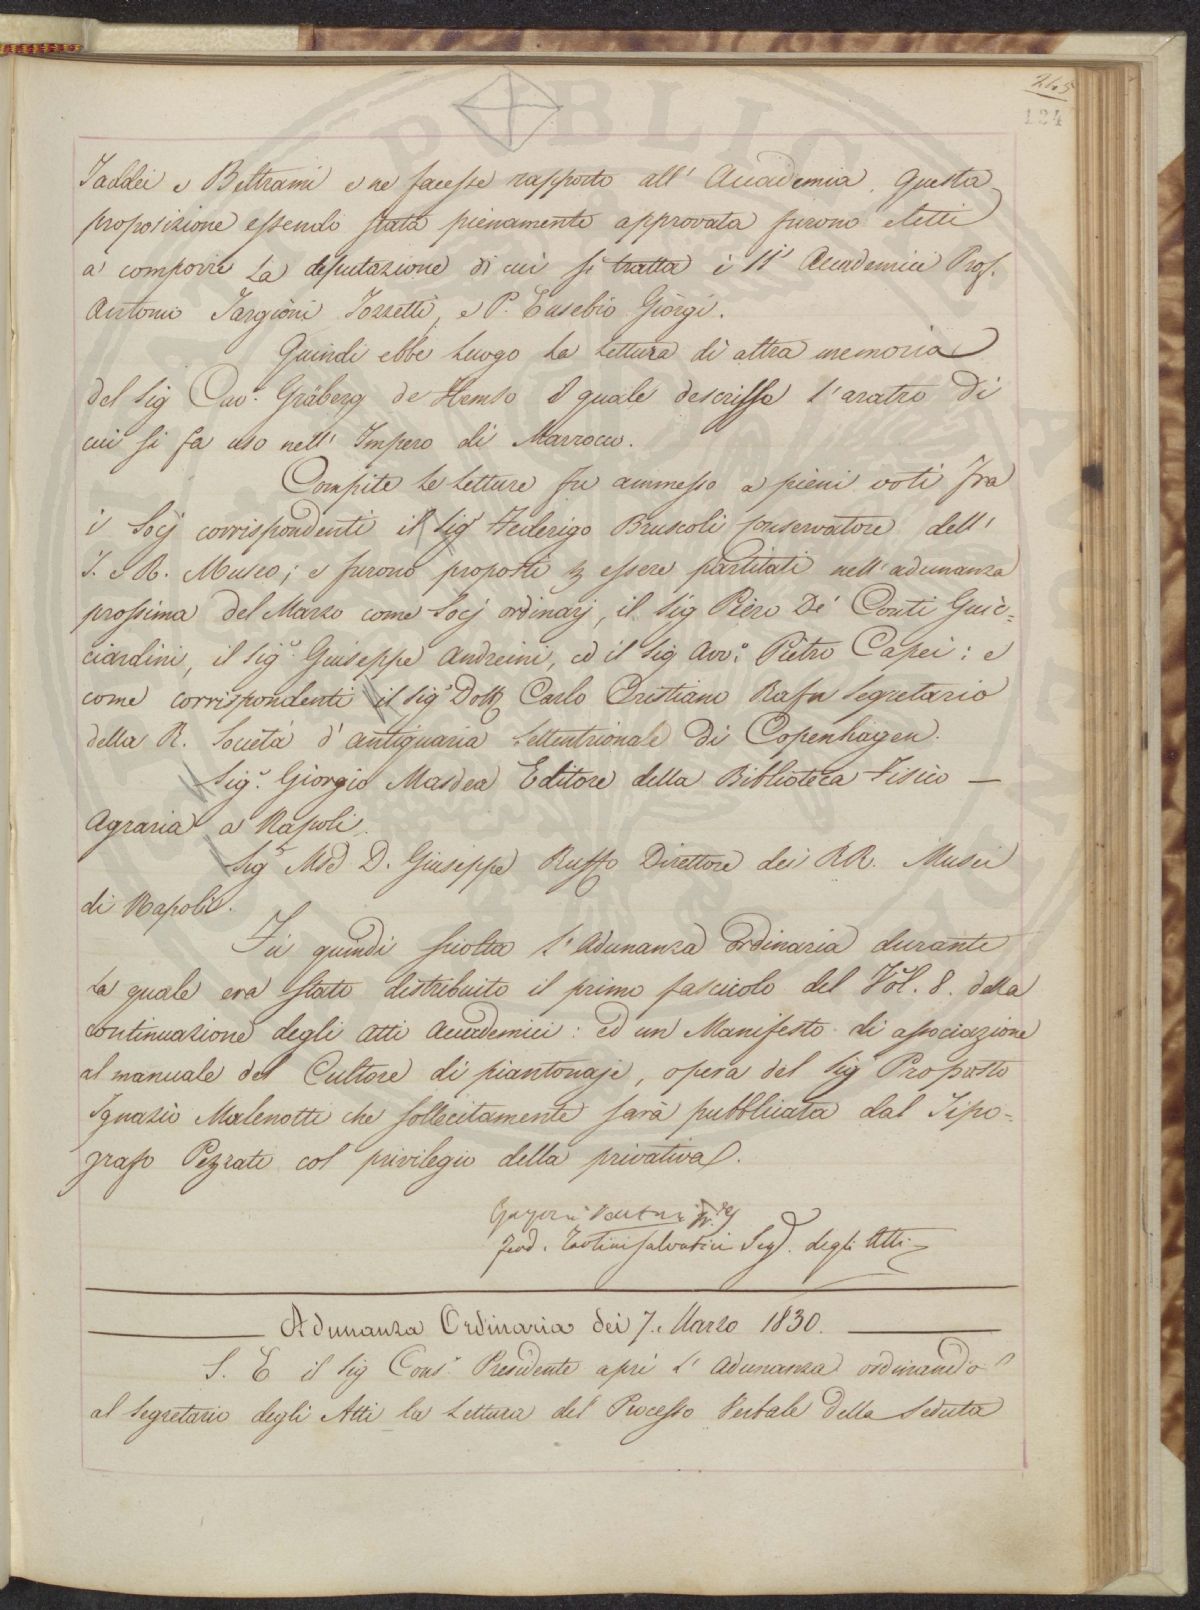 245
124
Taddei e Beltrami e ne facesse rapporto all' Accademia. Questa
proposizione essendo stata pienamente approvata furono eletti
a comporre la deputazione di cui si tratta i SS.i Accademici Prof.
Antonio Targioni Tozzetti, e P. Eusebio Giorgi.
Quindi ebbe luogo la lettura di altra memoria
del Sig Cav.r Gräberg de Hemso il quale descrisse l'aratro di
cui si fa uso nell' Impero di Marrocco.
Compite le letture fu ammesso a pieni voti fra
i Socj corrispondenti il Sig.r Federigo Bruscoli Conservatore dell'
I. e R. Museo; e furono proposti p essere partitati nell'adunanza
prossima del Marzo come Socj ordinarj, il Sig Piero De' Conti Guic=
ciardini, il Sig.r Giuseppe Andreini, ed il Sig Avv.o Pietro Capei: e
come corrispondenti il Sig.r Dott Carlo Cristiano Rafn Segretario
della R. Società d'antiquaria Settentrionale di Copenhagen.
Sig.r Giorgio Masdea Editore della Biblioteca Fisico —
Agraria a Napoli.
Sig.r Msd D. Giuseppe Ruffo Direttore dei RR. Musei
di Napoli.
Fu quindi sciolta l'Adunanza ordinaria durante
la quale era stato distribuito il primo fascicolo del Vol. 8. della
continuazione degli atti Accademici: ed un Manifesto di associazione
al manuale del Cultore di piantonaje, opera del Sig Proposto
Ignazio Malenotti che sollecitamente sarà pubblicata dal Tipo=
grafo Pezzati col privilegio della privativa.
Ferd. Tartini Salvatici Seg. degli Atti
Adunanza Ordinaria dei 7. Marzo 1830.
S. E il Sig Cons.r Presidente aprì l'adunanza ordinando
al Segretario degli Atti la lettura del Processo Verbale della Seduta